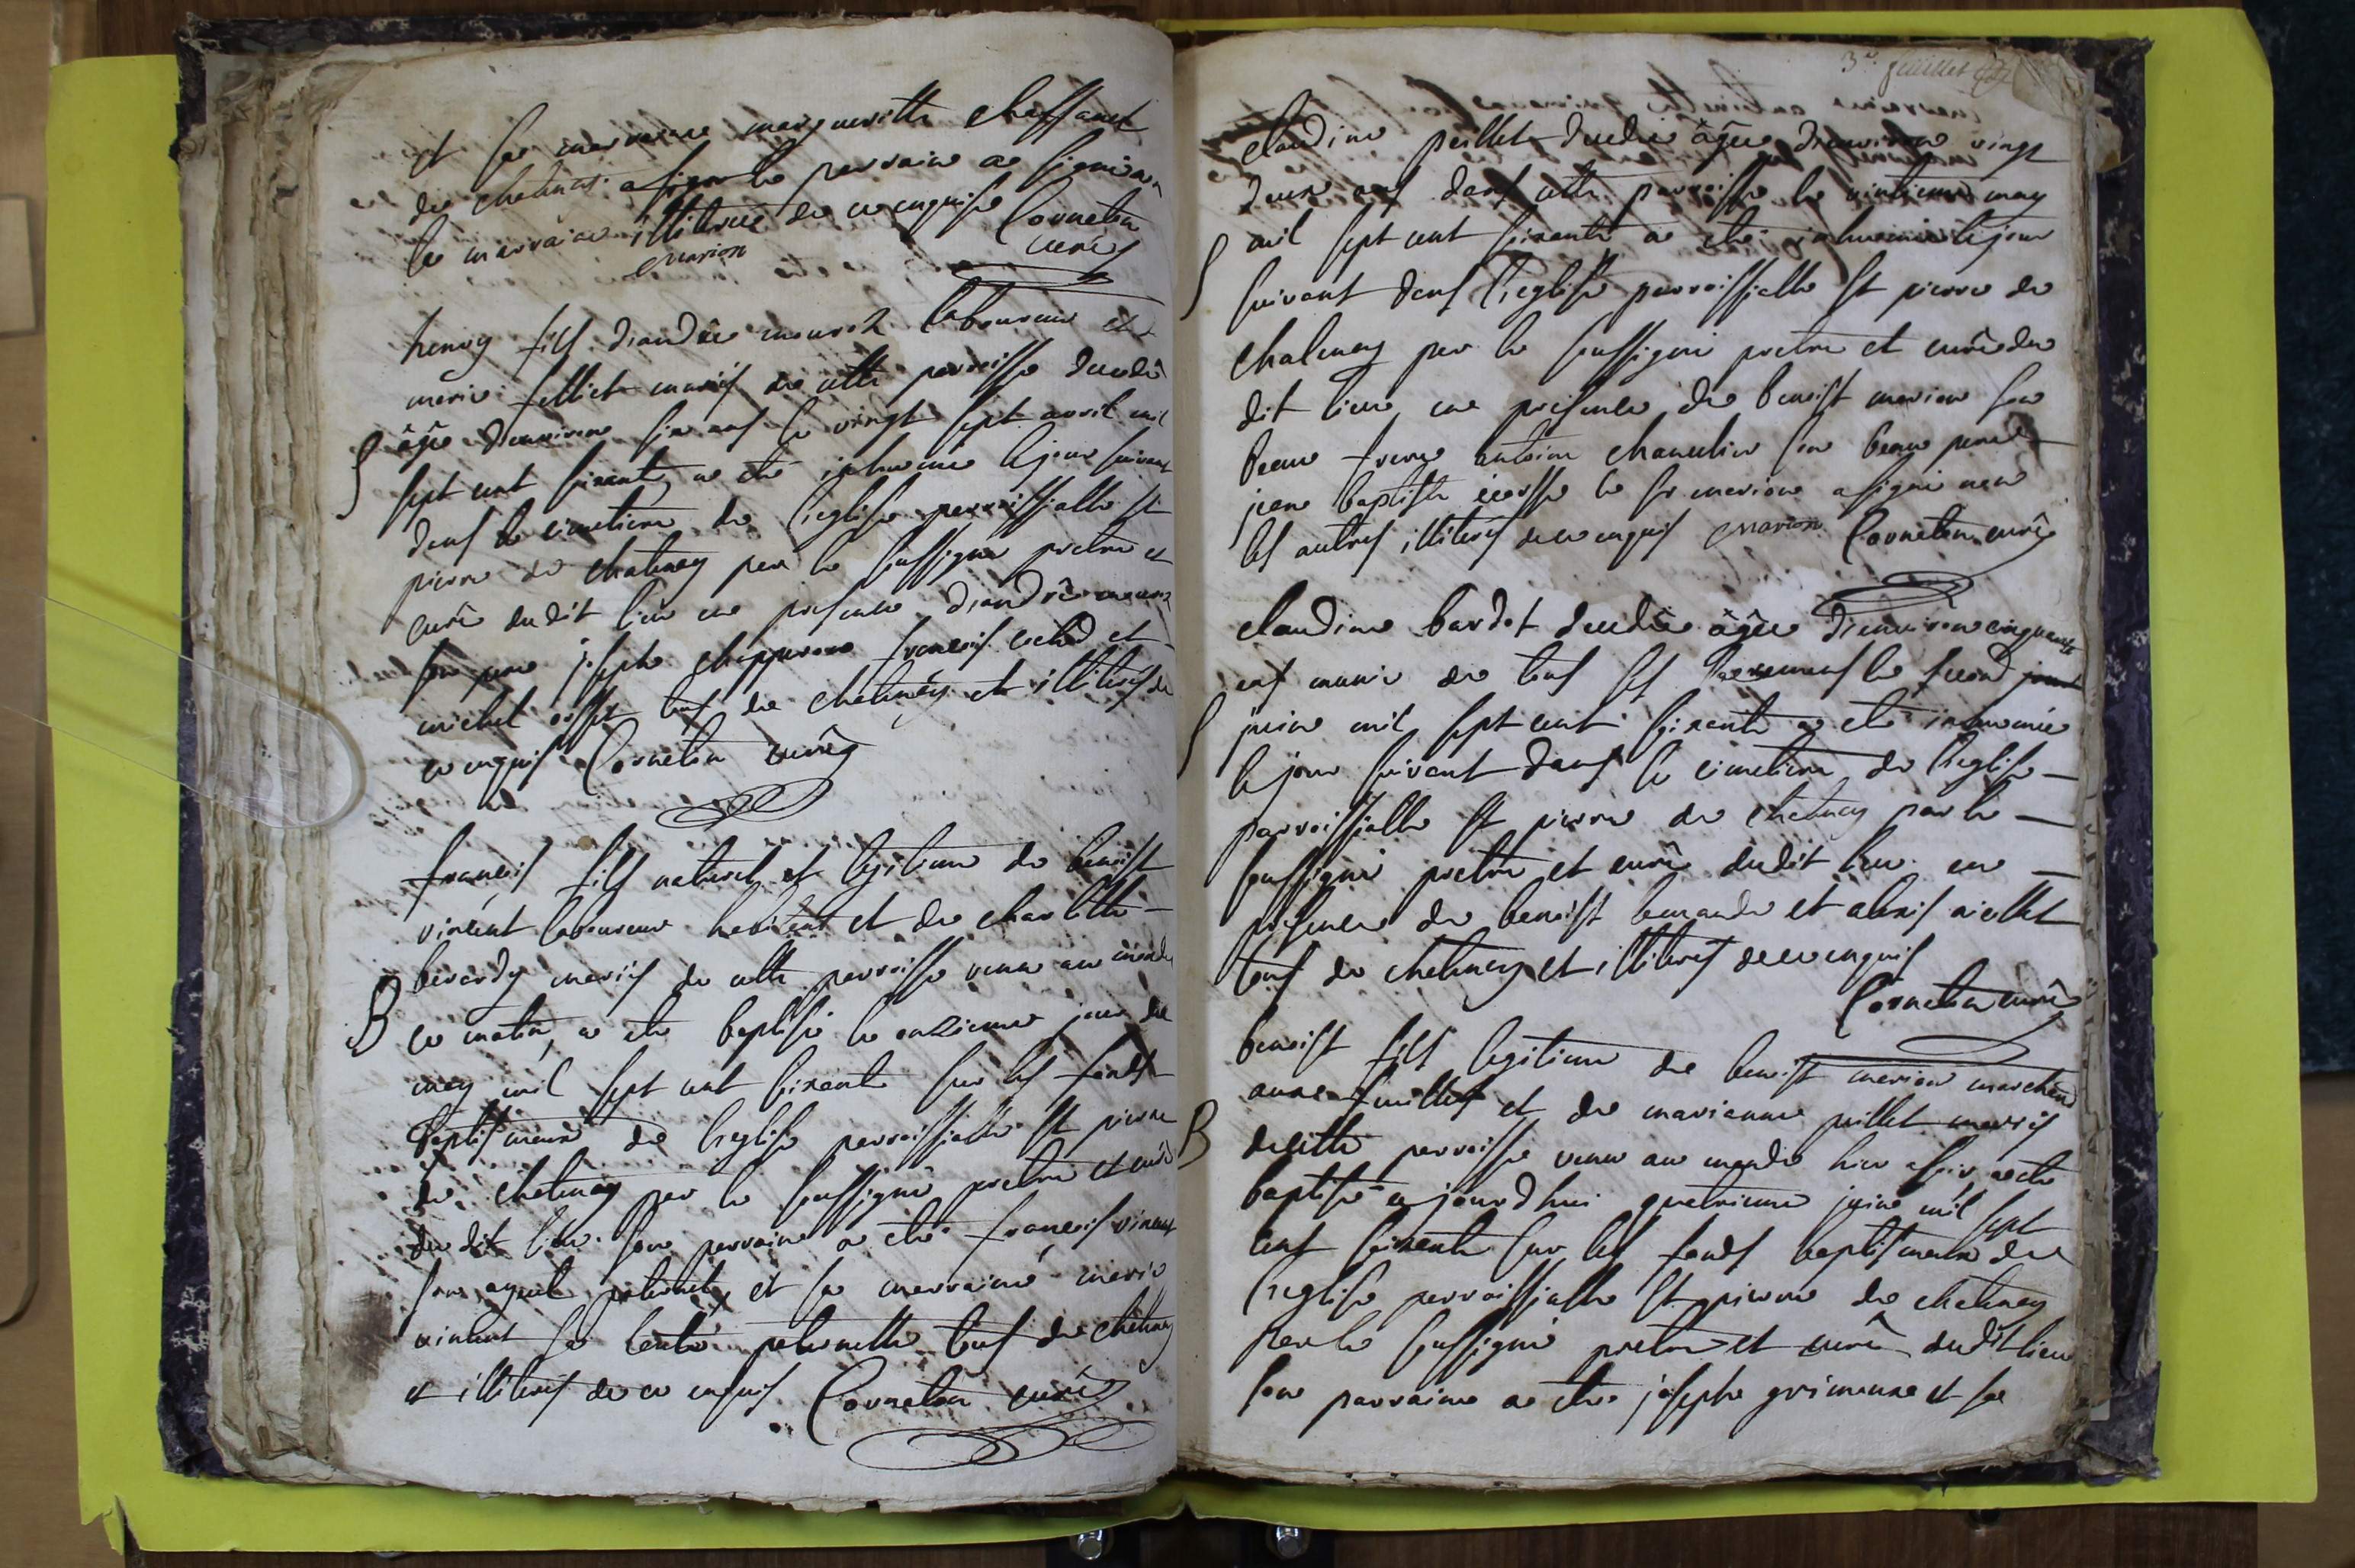 et sa marraine margueritte chaffanet
de chatenay a signé le parraine a signé non
la marraine illiterée de ce enquise Corneton
marion curé
henry fils d'andrée mourez laboureur et
marie felliet mariés de cette parroisse decedé
âgé d'environ six ans le vingt sept avril mil
S
sept cent soixante, a eté inhumé le jour suivant
dans le cimetiere de l'eglise parroissialle st
pierre de chatenay par le soussigné pretre et
curé dudit lieu en presence d'andré mourez
son pere joseph chappuron francois et
michel tous de chatenay et illiterés de
ce enquis Corneton curé
françois fils naturel et legitime de benoist
vincent laboureur habitant et de charlotte
berardy mariés de cette parroisse venu au monde
B
ce matin, a eté baptisé le onzieme jour de
may mil sept cent soixante sur les fonds
baptismeaux de l'eglise parroissialle st pierre
de chatenay par le soussigné pretre et curé
du dit lieu son parraine a eté françois vincent
son ayeul paternel, et sa marraine marie
vincent sa tante paternelle tous de chatenay
et illiterés de ce enquis Corneton curé
3e feuillet
Claudine peillet decedée âgée d'environ vingt
deux ans dans cette parroisse le vintieme may
mil sept cent soixante a eté inhumée le jour
S
suivant dans l'eglise parroissialle st pierre de
chatenay par le soussigné pretre et curé du
dit lieu en presence de benoist marion son
beau frere antoine chanelin son beau pere
jean baptiste écosse le sr marion a signé non
les autres illiterés de ce enquis marion Corneton curé
Claudine bardet decedée âgée d'environ cinquante
ans munie de tous ses sacremens le second jour
S
juin mil sept cent soixante a eté inhumée
le jour suivant dans le cimetiere de l'eglise
parroissialle st pierre de chatenay par le
soussigné pretre et curé dudit lieu en
presence de benoist et
tous de chatenay et illiterés de ce enquis
Corneton curé
benoist fils legitime de benoist marion marchand
aux feuilles et de marianne peillet mariés
B
de cette parroisse venu au monde hier a soir a eté
baptisé aujourd'hui quatrieme juin mil sept
cent soixante sur les fonds baptismeaux de
l'eglise parroissialle st pierre de chatenay
par le soussigné pretre et curé dudit lieu
son parraine a eté joseph grimaux et sa